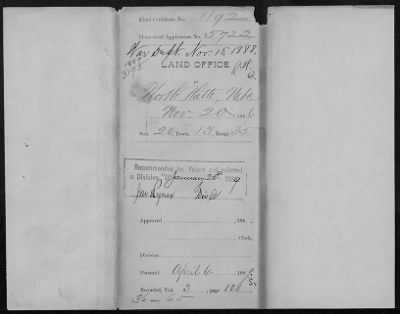 Final Certificate No. 1192
Homestead Application No. 5722
War Dept. Nov. 15 1888.
LAND OFFICE
at
North Platte, Nebr
Nov. 20 1886
Sec. 20, Town. 13, Range 35
Recommended for Patent and referred
to Division "C" January 25th 1889
Div C
Approved , 188 ,
, Clerk,
Division
Patented April 6, 1889
Recorded, Vol. 3, page 108
36-65